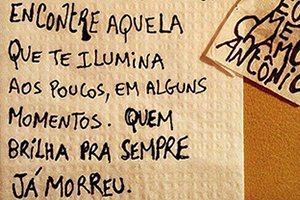 ENCONTRE AQUELA
QUE TE ILUMINA
AOS POUCOS, EM ALGUNS
MOMENTOS. QUEM
BRILHA PRA SEMPRE
JÁ MORREU.
ANTÔNIO